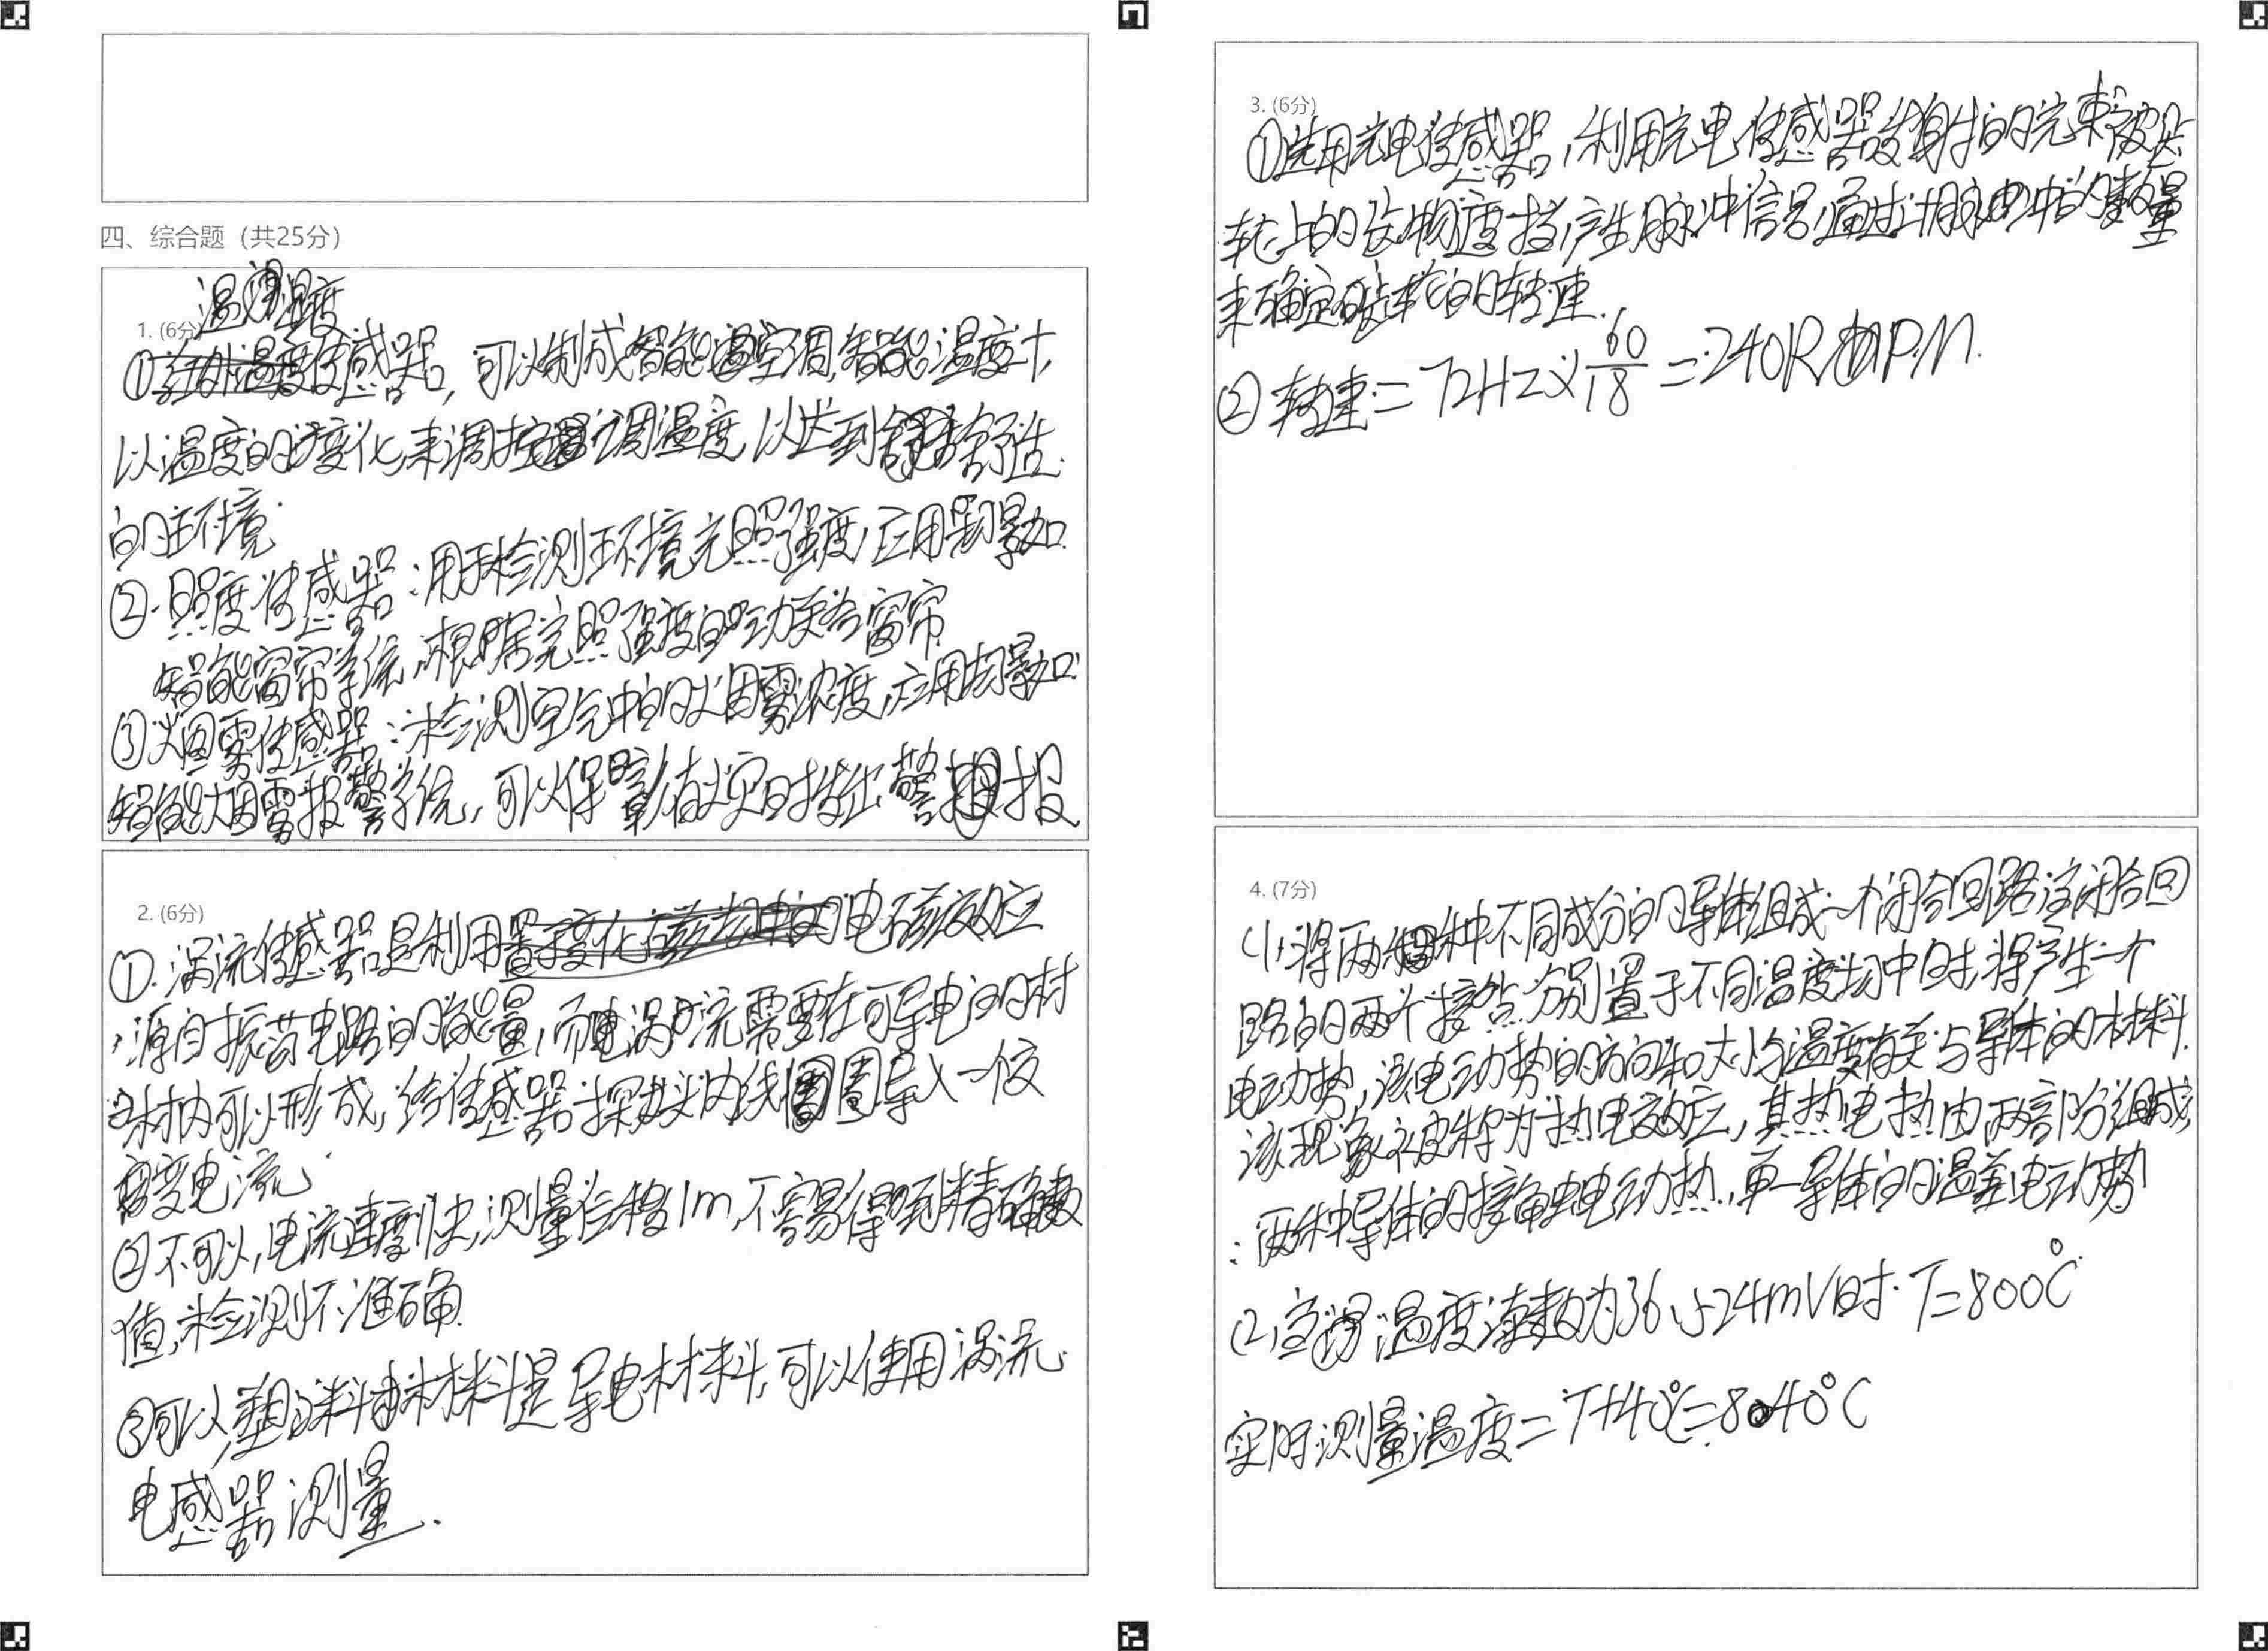 四、综合题（共25分）
温湿度
1. (6分)
①传感器，可以制成智能空调，智能温度计，
以温度的变化，来调控空调温度，以达到舒适
的环境.
②.照度传感器：用于检测环境光照强度，应用场景如
智能窗帘系统，根据光照强度自动开合窗帘
③烟雾传感器：检测空气中的烟雾浓度，应用场景如：
智能烟雾报警系统，可以保障有火灾时发出警报
2. (6分)
①.涡流传感器是利用电磁效应
，源自振荡电路的能量，而电涡流需要在可导电的材
材内可以形成，给传感器探头内线圈导入一个交
变电流.
②不可以，电流速度快，测量位移1m，不容易得到精确数
值，检测不准确.
③可以，塑料材料是导电材料，可以使用涡流
电感器测量.
3. (6分)
①选用光电传感器，利用光电传感器发射的光束被
轮上的遮挡，产生脉冲信号，通过计脉冲的数量
来确定齿轮的转速.
②转速=72HZ×60/18=240RPM.
4. (7分)
(1)将两种不同成分的导体组成一个闭合回路，该闭合回
路的两个接点分别置于不同温度场中时，将产生一个
电动势，该电动势的方向和大小与温度有关与导体的材料.
该现象被称为热电效应，其热电热由两部份组成
：两种导体的接触电动热，单一导体的温差电动势
(2)温度读数为36.524mV时. T=800℃.
实际测量温度=T+40℃=840℃